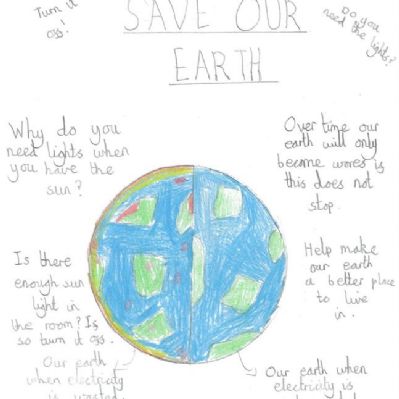 Turn it
oss!
SAVE OUR
EARTH
Do you
need the lights?
Why do you
need lights when
you have the
sun?
Over time our
earth will only
become wores is
this does not
stop.
Is there
enough sun
light in
the room? Is
so turn it oss.
Help make
our earth
a better place
to live
in.
Our earth
when electricity
is wasted
Our earth when
electricity is